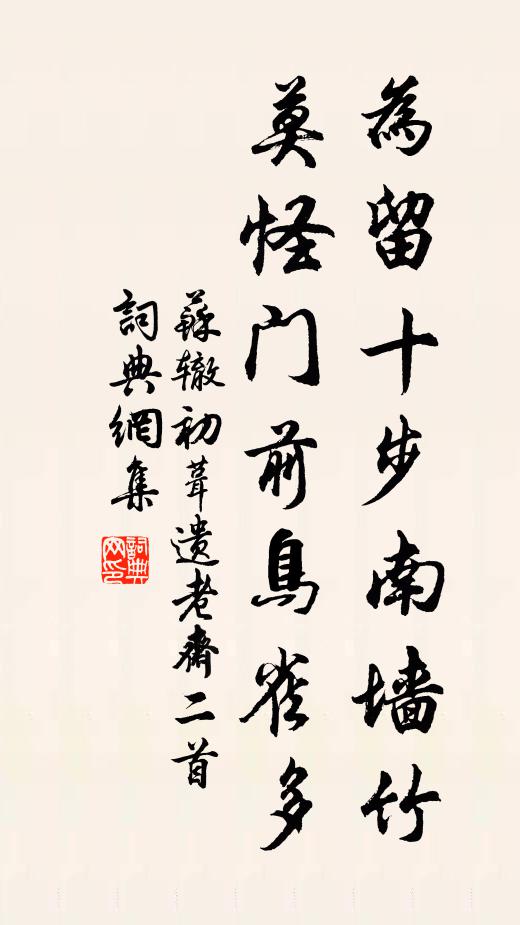 為留十步南墙竹
莫怪門前鳥雀多
蘇辙初葺遗老齋二首
詞典網集
詞典网印